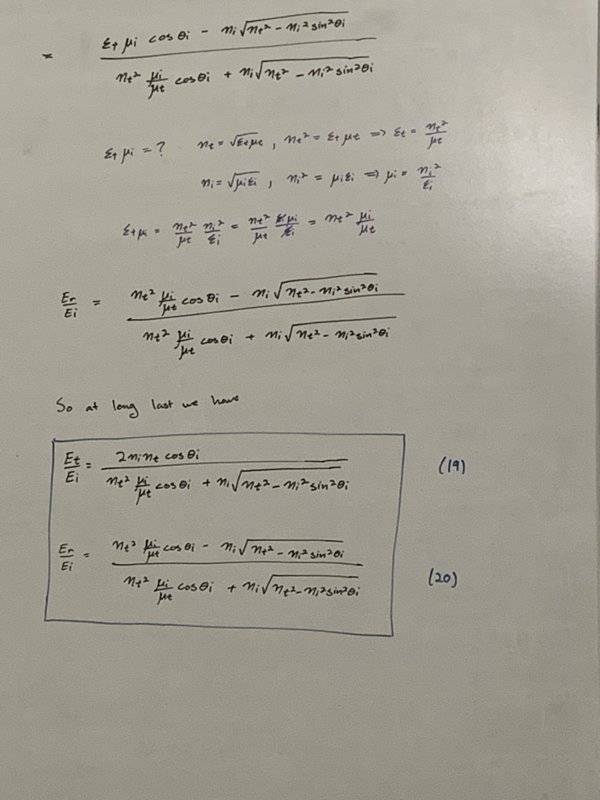 = (εt μi cosθi − ni√(nt² − ni² sin²θi)) / (nt² μi/μt cosθi + ni√(nt² − ni² sin²θi))
εt μi = ? nt = √(εt μt) , nt² = εt μt ⇒ εt = nt²/μt
ni = √(μi εi) , ni² = μi εi ⇒ μi = ni²/εi
εt μi = nt²/μt ni²/εi = nt²/μt εi μi/εi = nt² μi/μt
Er/Ei = (nt² μi/μt cosθi − ni√(nt² − ni² sin²θi)) / (nt² μi/μt cosθi + ni√(nt² − ni² sin²θi))
So at long last we have
Et/Ei = (2 ni nt cosθi) / (nt² μi/μt cosθi + ni√(nt² − ni² sin²θi)) (19)
Er/Ei = (nt² μi/μt cosθi − ni√(nt² − ni² sin²θi)) / (nt² μi/μt cosθi + ni√(nt² − ni² sin²θi)) (20)